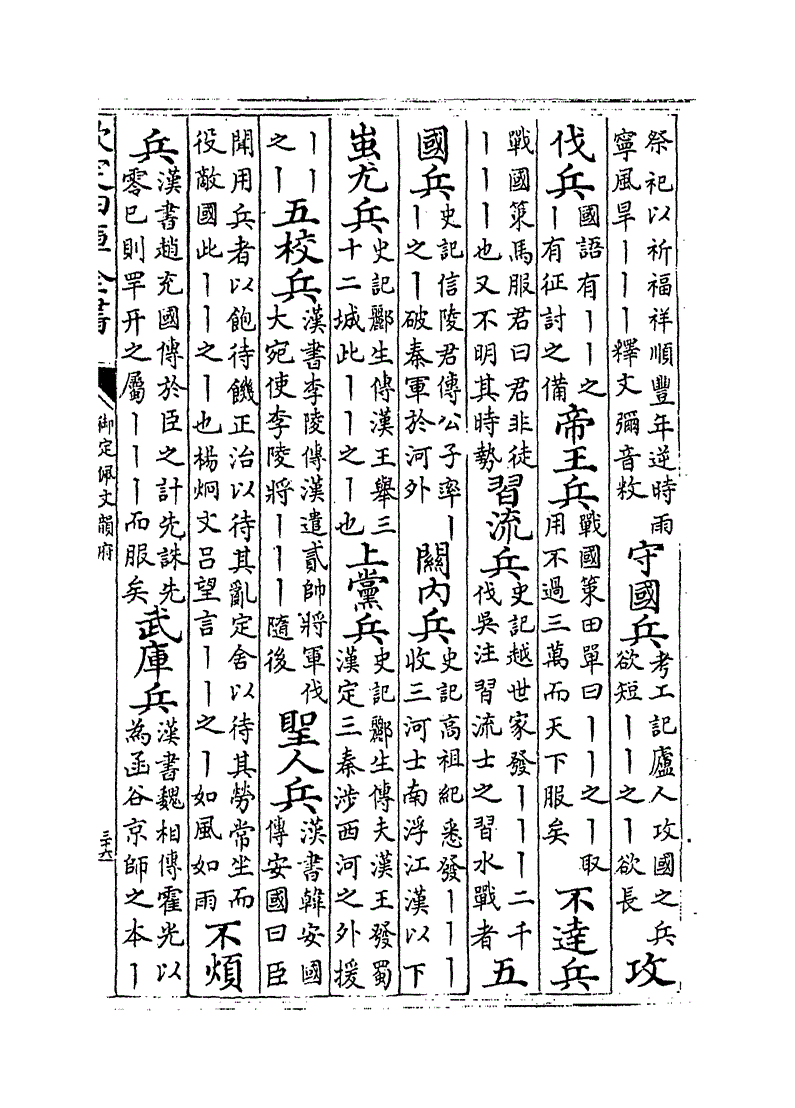 祭祀以祈福祥順豐年逆時雨
寧風旱丨丨丨釋文彌音敉
守國兵
考工記廬人攻國之兵
欲短丨丨之丨欲長
攻
伐兵
國語有丨丨之
丨有征討之備
帝王兵
戰國策田單曰丨丨之丨取
用不過三萬而天下服矣
不達兵
戰國策馬服君曰君非徒
丨丨丨也又不明其時勢
習流兵
史記越世家發丨丨丨二千
伐吳注習流士之習水戰者
五
國兵
史記信陵君傳公子率丨
丨之丨破秦軍於河外
關内兵
史記高祖紀悉發丨丨丨
收三河士南浮江漢以下
蚩尤兵
史記酈生傳漢王舉三
十二城此丨丨之丨也
上黨兵
史記酈生傳夫漢王發蜀
漢定三秦涉西河之外援
丨丨
之丨
五校兵
漢書李陵傳漢遣貳帥將軍伐
大宛使李陵將丨丨丨隨後
聖人兵
漢書韓安國
傳安國曰臣
聞用兵者以飽待饑正治以待其亂定舍以待其勞常坐而
役敵國此丨丨之丨也楊炯文吕望言丨丨之丨如風如雨
不煩
兵
漢書趙充國傳於臣之計先誅先
零已則罕幵之屬丨丨丨而服矣
武庫兵
漢書魏相傳霍光以
為函谷京師之本丨
欽定四庫全書
御定佩文韻府
三十六